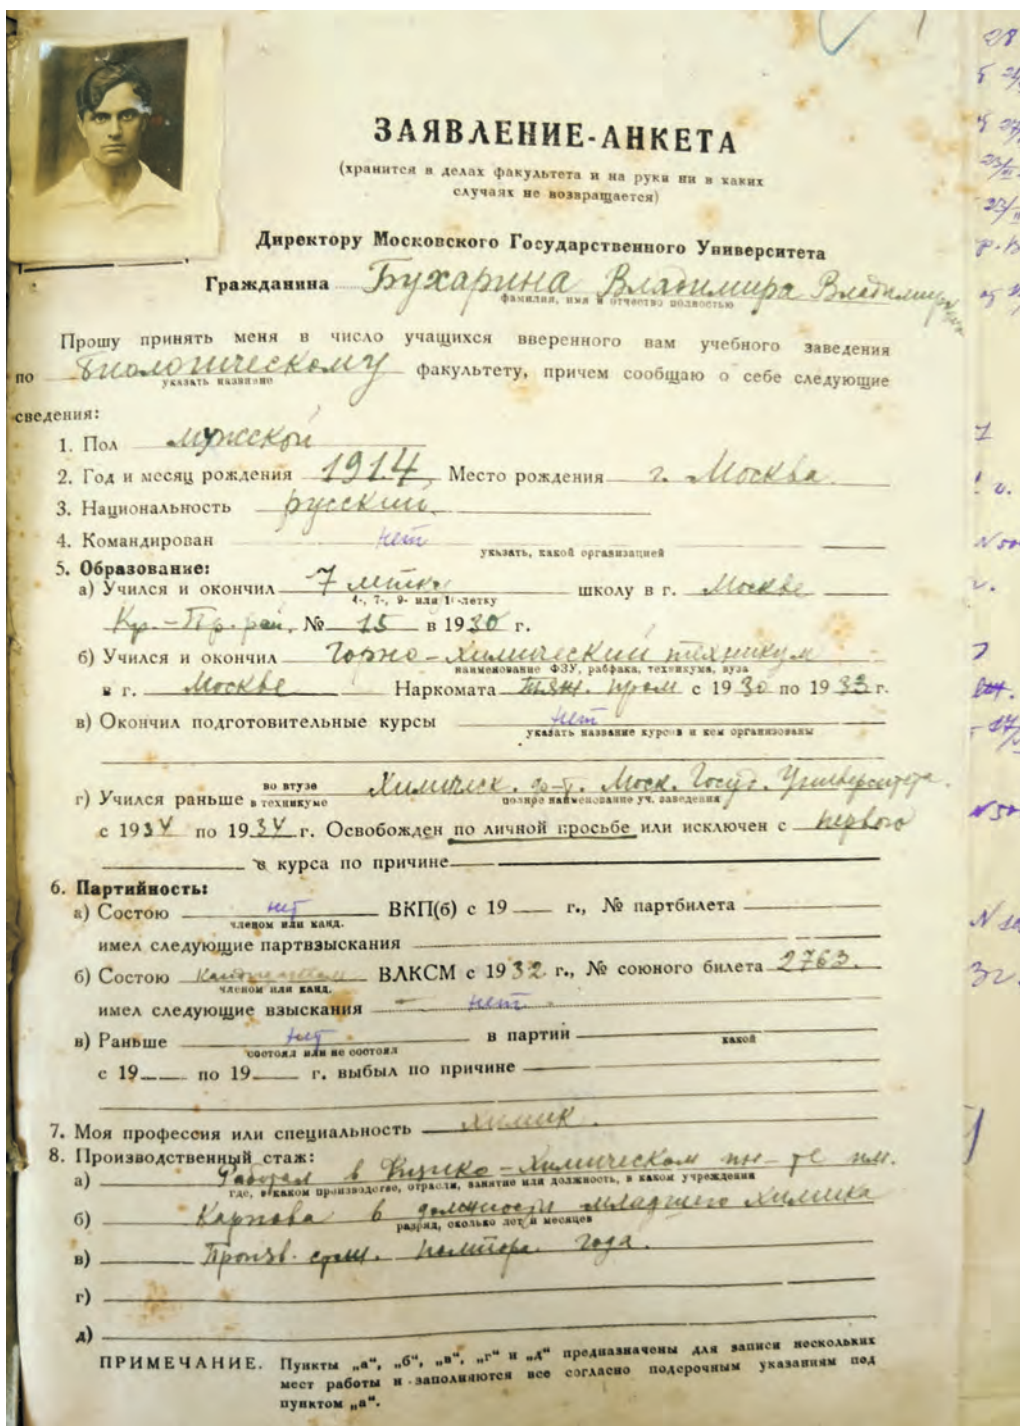 ЗАЯВЛЕНИЕ-АНКЕТА
(хранится в делах факультета и на руки ни в каких
случаях не возвращается)
Директору Московского Государственного Университета
Гражданина Бухарина Владимира Владимировича
фамилия, имя и отчество полностью
Прошу принять меня в число учащихся вверенного вам учебного заведения
по Биологическому факультету, причем сообщаю о себе следующие
указать название
сведения:
1. Пол мужской
2. Год и месяц рождения 1914. Место рождения г. Москва.
3. Национальность русский.
4. Командирован нет
указать, какой организацией
5. Образование:
а) Учился и окончил 7 летку школу в г. Москве
4-, 7-, 9- или 10-летку
Кр.-Пр. рай. № 15 в 1930 г.
б) Учился и окончил Горно-Химический техникум
наименование ФЗУ, рабфака, техникума, вуза
в г. Москве Наркомата тяж. пром с 1930 по 1933 г.
в) Окончил подготовительные курсы нет
указать название курсов и кем организованы
г) Учился раньше во втузе в техникуме Химическ. ф-т. Моск. Госуд. Университета.
полное наименование уч. заведения
с 1934 по 1934 г. Освобожден по личной просьбе или исключен с первого
курса по причине
6. Партийность:
а) Состою нет ВКП(б) с 19 г., № партбилета
членом или канд.
имел следующие партвзыскания
б) Состою ВЛКСМ с 1932 г., № союзного билета 2763.
членом или канд.
имел следующие взыскания нет
в) Раньше нет в партии
состоял или не состоял какой
с 19 по 19 г. выбыл по причине
7. Моя профессия или специальность химик.
8. Производственный стаж:
а) Работал в Физико-Химическом ин-те им.
где, в каком производстве, отрасли, занятие или должность, в каком учреждении
б) Карпова в должности младшего химика
разряд, сколько лет и месяцев
в) Произв. стаж. полтора года.
г)
д)
ПРИМЕЧАНИЕ. Пункты „а“, „б“, „в“, „г“ и „д“ предназначены для записи нескольких
мест работы и заполняются все согласно подсрочным указаниям под
пунктом „а“.